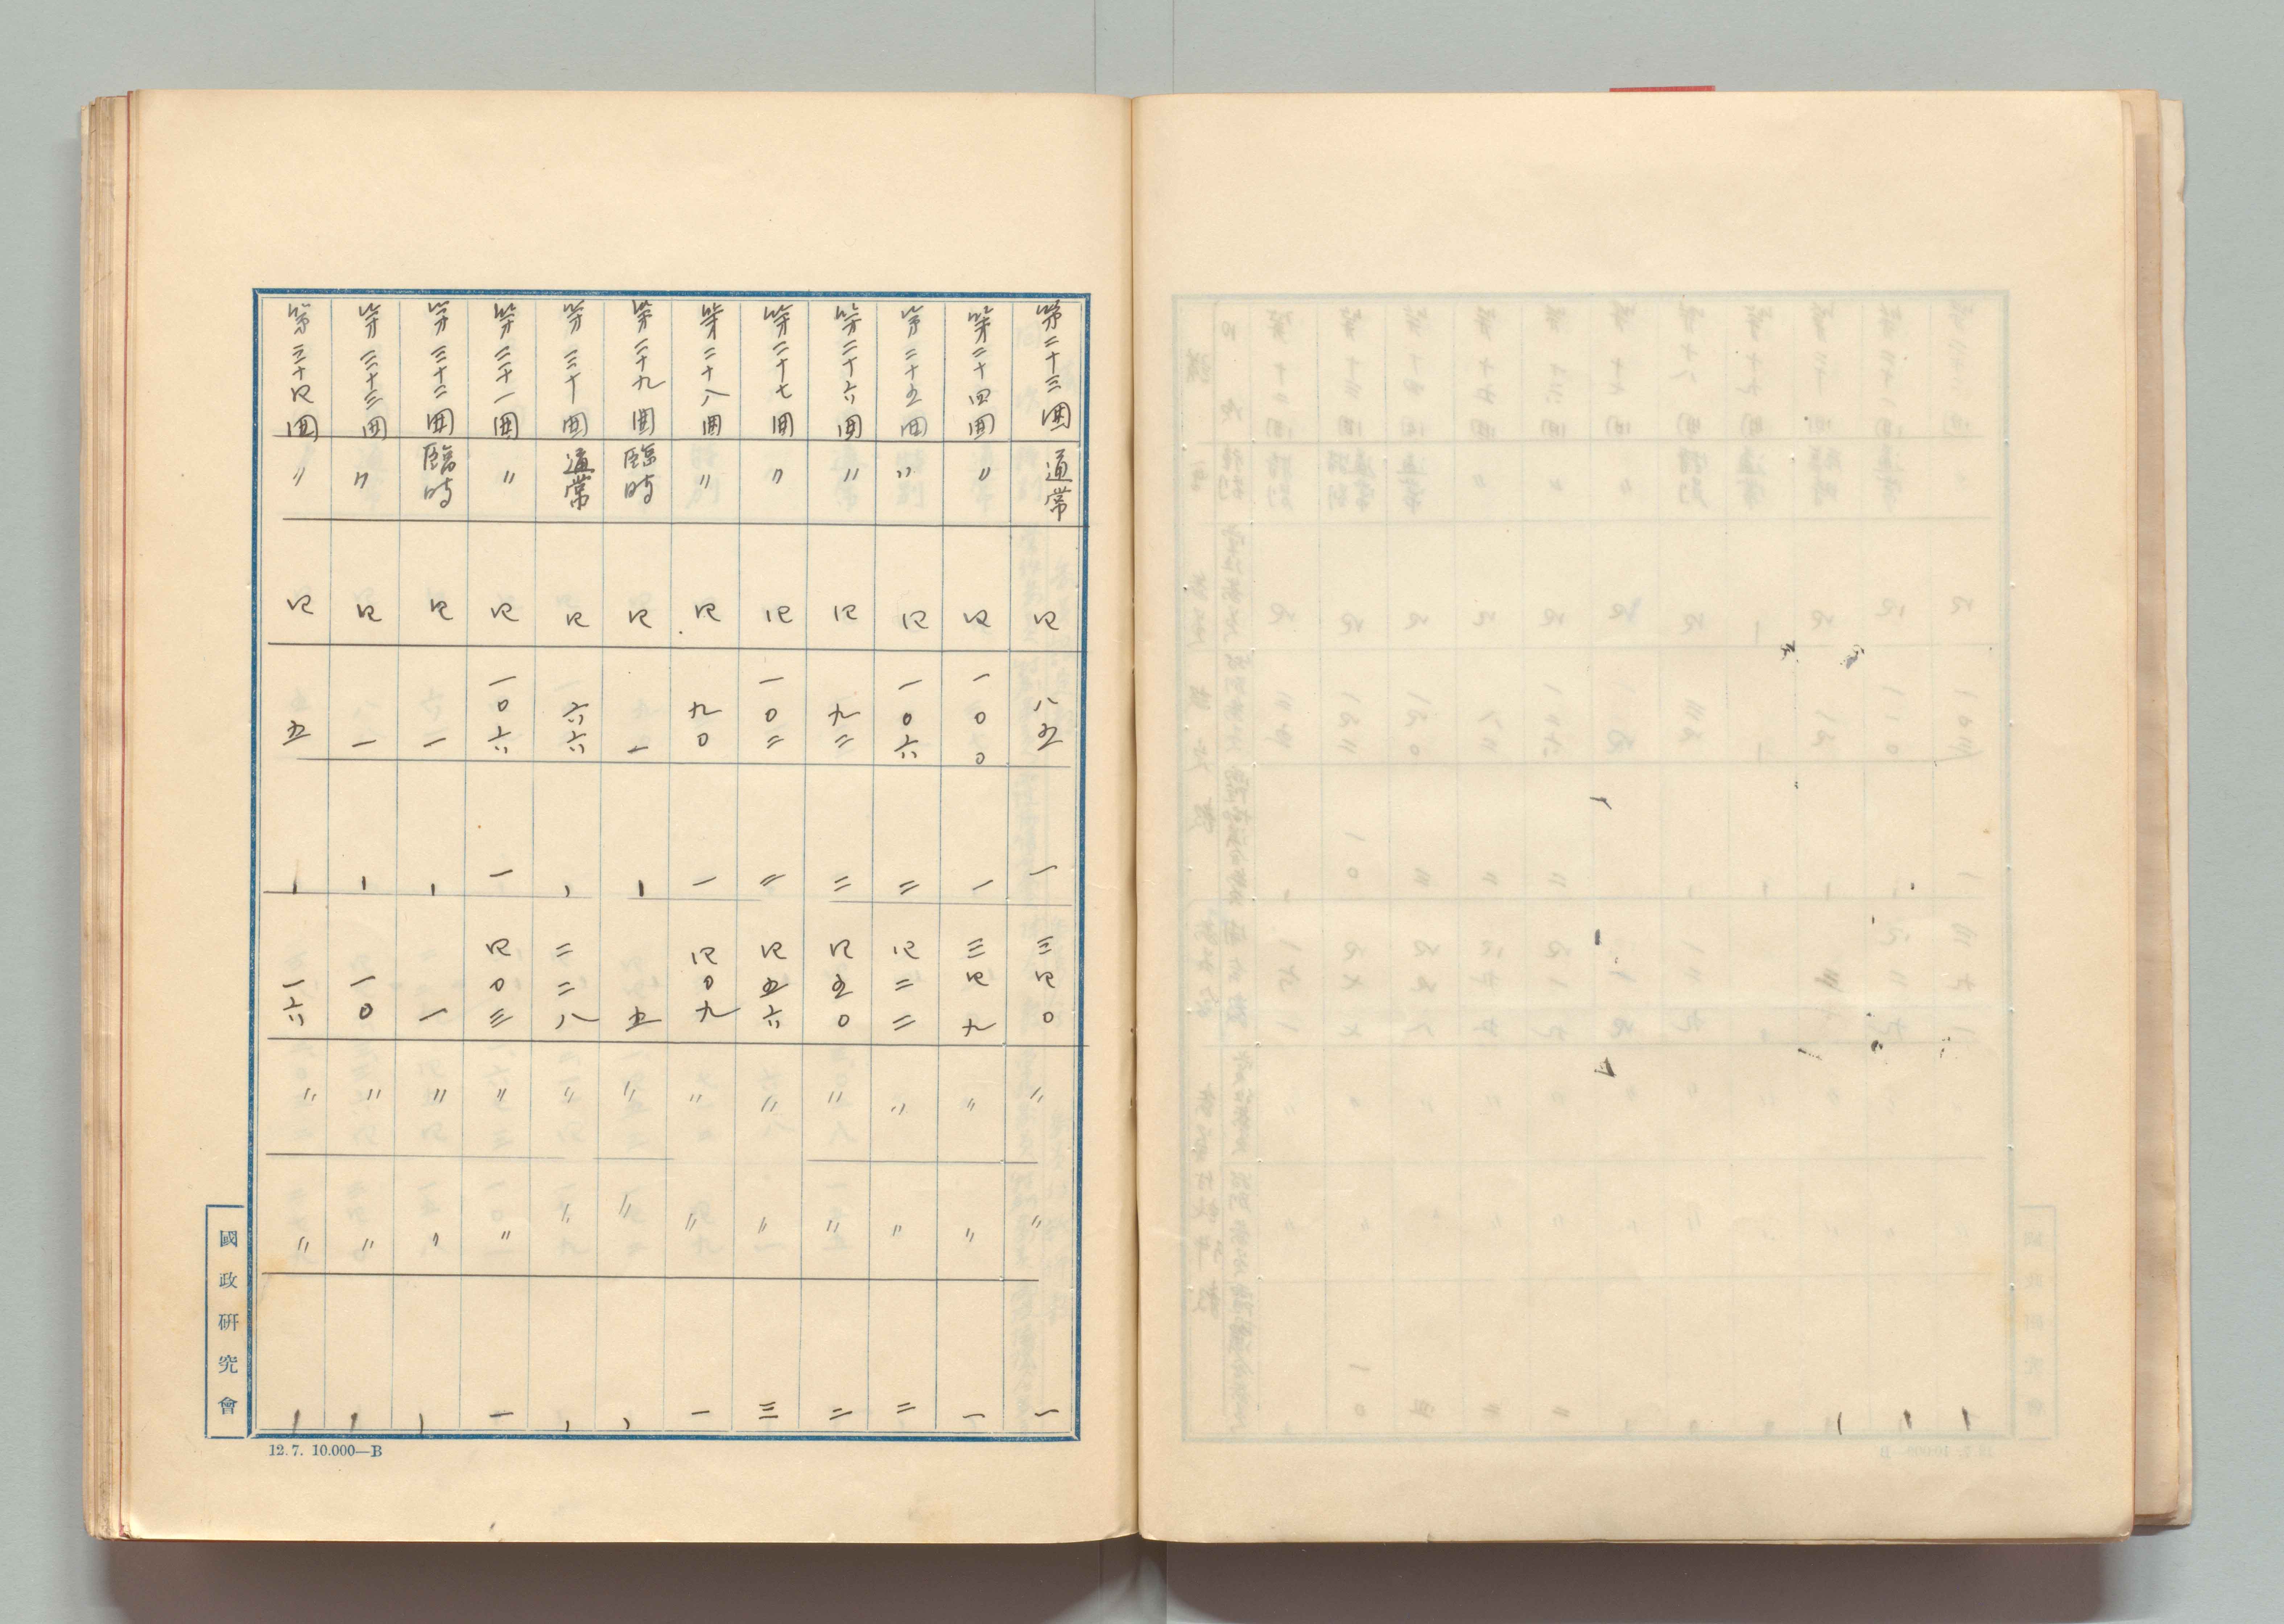 第二十三回 通常 四 八五 一 三四〇 〃 〃 一
第二十四回 〃 四 一〇〇 一 三四九 〃 〃 一
第二十五回 〃 四 一〇六 二 四二二 〃 〃 二
第二十六回 〃 四 九二 二 四五〇 〃 〃 二
第二十七回 〃 四 一〇二 二 四五六 〃 〃 三
第二十八回 〃 四 九〇 一 四〇九 〃 〃 一
第二十九回 臨時 四 一 ー 五 〃 〃 ー
第三十回 通常 四 六六 ー 二二八 〃 〃 ー
第三十一回 〃 四 一〇六 一 四〇三 〃 〃 一
第三十二回 臨時 四 一 ー 一 〃 〃 ー
第三十三回 〃 四 一 ー 一〇 〃 〃 ー
第三十四回 〃 四 五 ー 一六 〃 〃 ー
國政研究會
12.7. 10.000—B